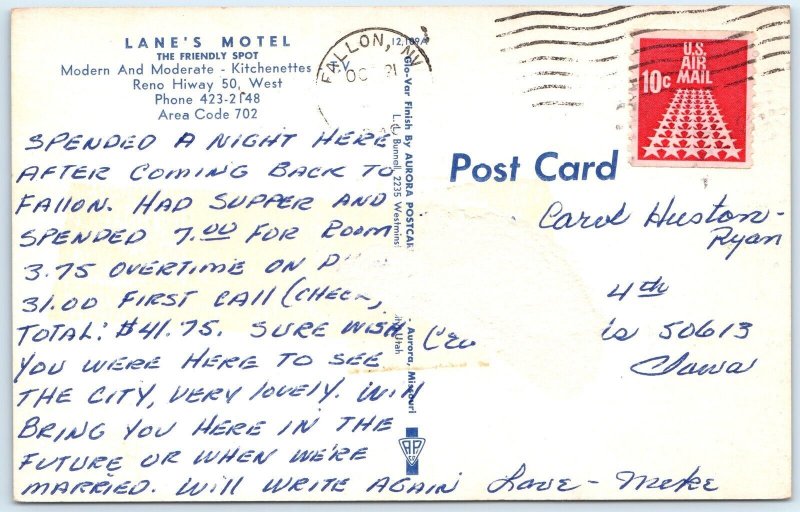 LANE'S MOTEL
THE FRIENDLY SPOT
Modern And Moderate - Kitchenettes
Reno Hiway 50, West
Phone 423-2148
Area Code 702
SPENDED A NIGHT HERE
AFTER COMING BACK TO
FALLON. HAD SUPPER AND
SPENDED 7.00 FOR ROOM
3.75 OVERTIME ON
31.00 FIRST CALL (CHECK,
TOTAL: $41.75. SURE WISH
YOU WERE HERE TO SEE
THE CITY, VERY LOVELY. WILL
BRING YOU HERE IN THE
FUTURE OR WHEN WE'RE
MARRIED. WILL WRITE AGAIN Love - Meke
12,109A
Glo-Var Finish By AURORA POSTCAR
Aurora, Missouri
L. Bunnell, 2235 Westmins
Utah
APCO
FALLON, NV
OC
Post Card
U.S.
AIR
MAIL
10c
Carol Huston-
Ryan
4th
50613
Iowa